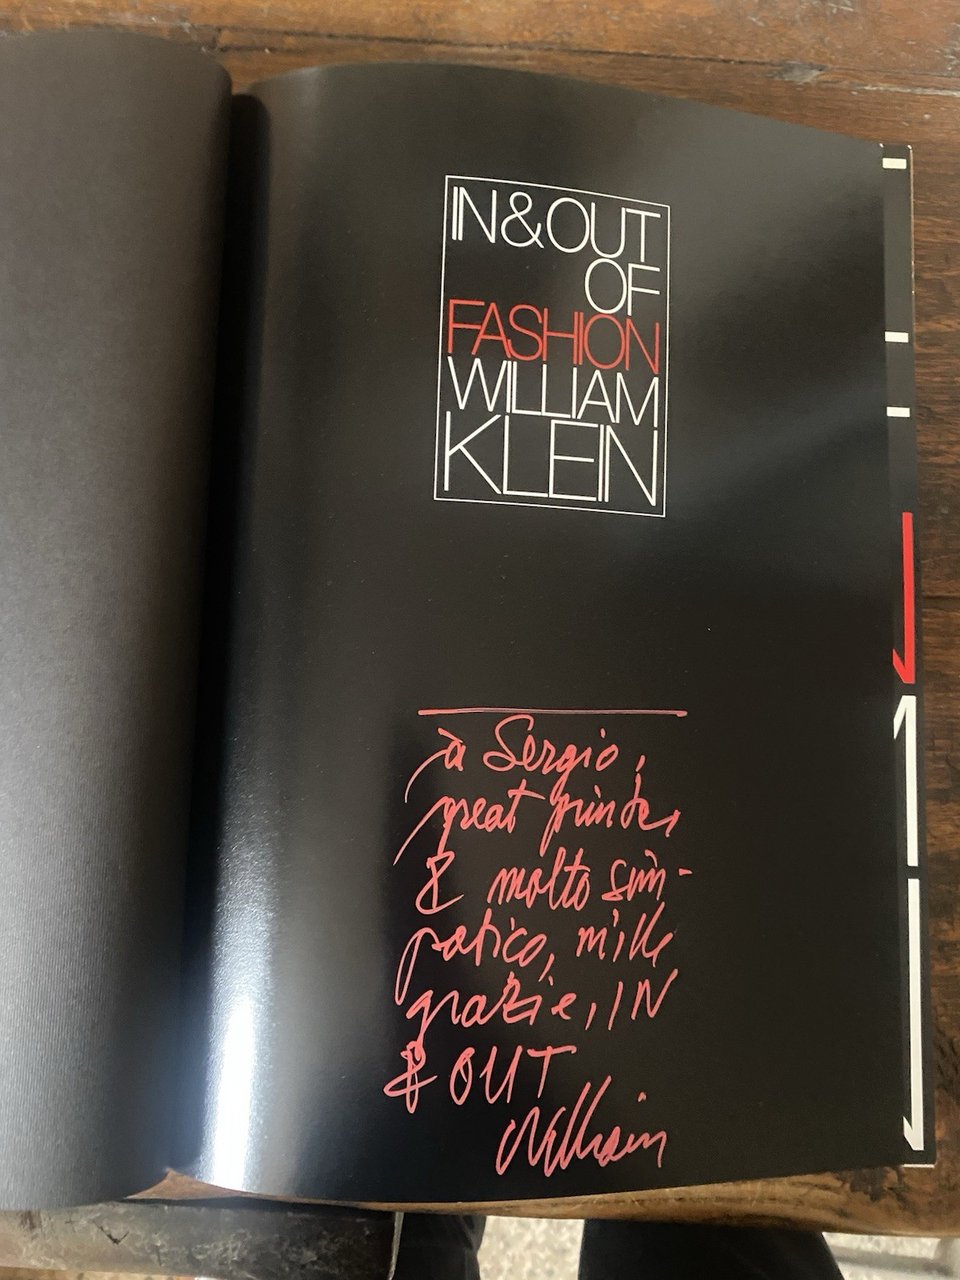 IN & OUT
OF
FASHION
WILLIAM
KLEIN
à Sergio,
great printer,
& molto sim-
patico, mille
grazie, IN
& OUT
William